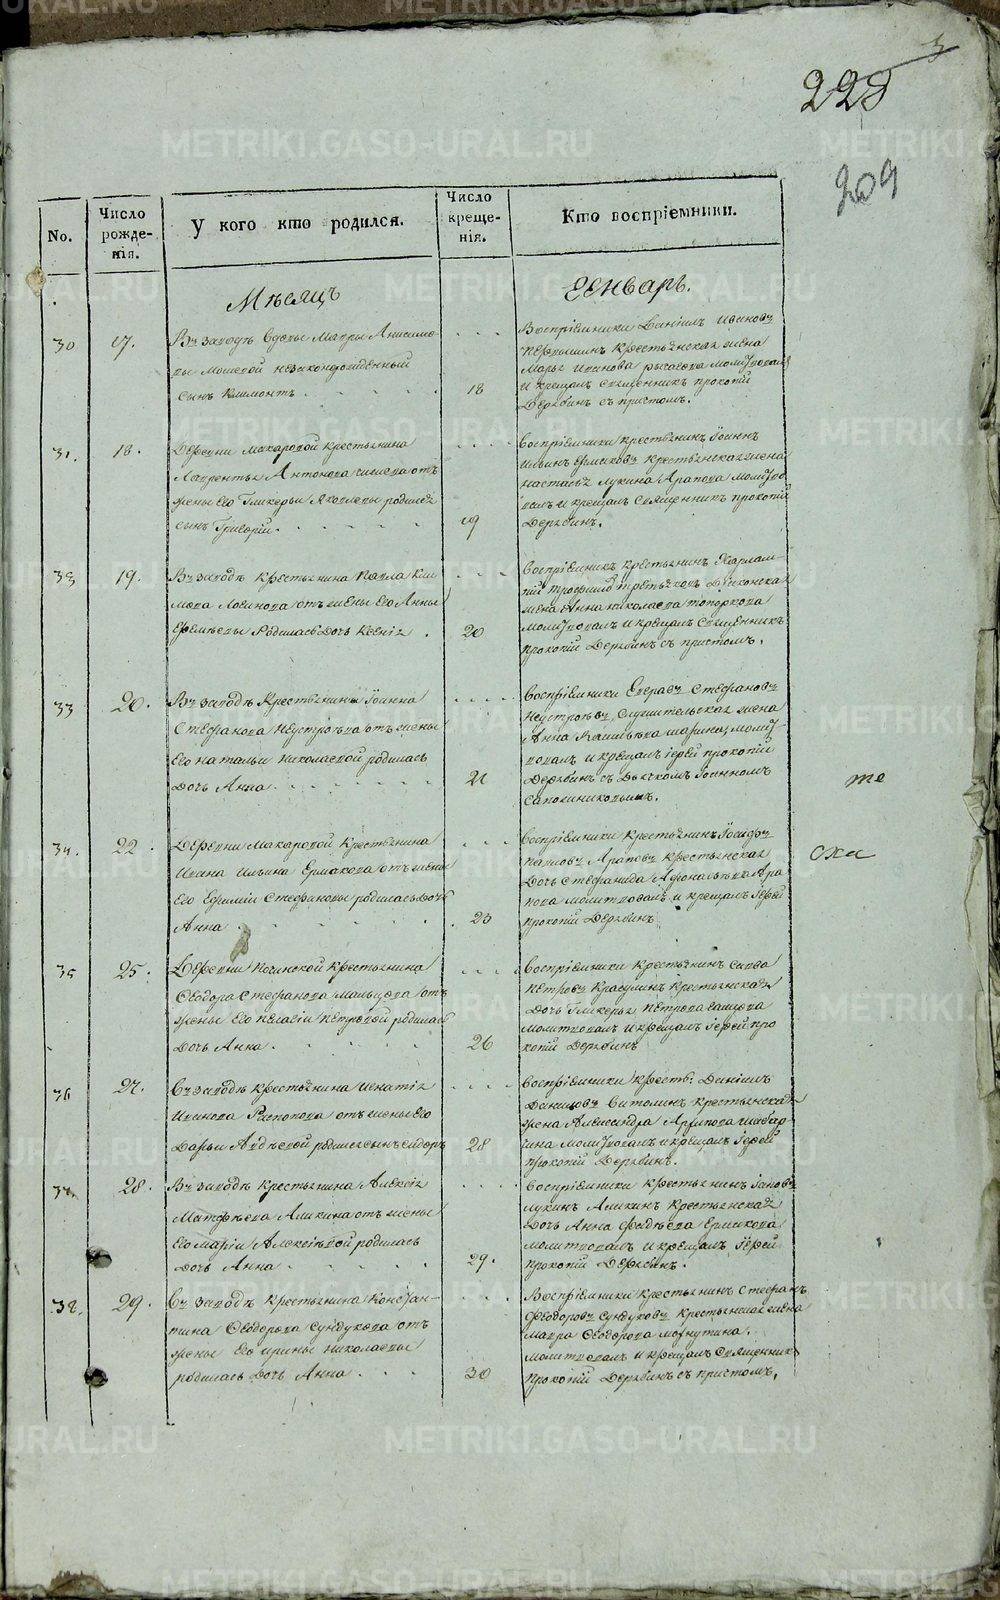 3
228
209
No.
Число рожде-нія.
У кого кто родился.
Число креще-нія.
Кто воспріемники.
Мѣсяцъ
Генварь.
30
17.
Въ заводѣ вдовы Мавры Анисимо-
вы незаконнорожденный
сынъ Климонтъ
18
Воспріемники Даніилъ Ивановъ
крестьянская жена
Марья Иванова молитвовалъ
и крещалъ священникъ Прокопій
Дерябинъ съ причтомъ.
31.
18.
Деревни Макаровой крестьянина
Лаврентья Антонова отъ
жены его Гликерьи Яковлевы родился
сынъ Григорій
19
Воспріемники крестьянинъ Іоаннъ
Ильинъ Ермаковъ крестьянская жена
Настасья Лукина Арапова молитво
валъ и крещалъ священникъ Прокопій
Дерябинъ.
32
19.
Въ заводѣ крестьянина Павла Кли
мова Логинова отъ жены его Анны
Еремѣевы родилась дочь Ксенія
20
Воспріемники крестьянинъ Харлам-
пій Трофимовъ Третьяковъ Дьяконская
жена Анна Николаева Топоркова
молитвовалъ и крещалъ священникъ
Прокопій Дерябинъ съ причтомъ.
33
20.
Въ заводѣ крестьянина Іоанна
Стефанова Неустроева отъ жены
его Натальи Николаевой родилась
дочь Анна
21
Воспріемники Стефановъ
Неустроевъ, служительская жена
Анна молит
вовалъ и крещалъ іерей Прокопій
Дерябинъ съ дьячкомъ Іоанномъ
Сапожниковымъ.
те
34.
22
Деревни Макаровой крестьянина
Ивана Ильина Ермакова отъ жены
его Ефиміи Стефановы родилась дочь
Анна
23
Воспріемники крестьянинъ Іосифъ
Павловъ Араповъ крестьянская
дочь Стефанида Афонасьева Ара
пова молитвовалъ и крещалъ іерей
Прокопій Дерябинъ
ска
35
25.
Деревни крестьянина
Феодора Стефанова Мальцова отъ
жены его Пелагіи Петровой родилась
дочь Анна
26
Воспріемники крестьянинъ Савва
Петровъ Красулинъ крестьянская
дочь Гликерья Петрова
молитвовалъ и крещалъ іерей Про
копій Дерябинъ
36
27.
Въ заводѣ крестьянина Игнатія
Иванова Распопова отъ жены его
Дарьи Авдѣевой родился сынъ Сидоръ
28
Воспріемники крестьян: Даніилъ
Даниловъ крестьянская
жена Александра Архипова
молитвовалъ и крещалъ іерей
Прокопій Дерябинъ.
37.
28.
Въ заводѣ крестьянина Алексія
Матфѣева Аликина отъ жены
его Маріи Алексѣевой родилась
дочь Анна
29.
Воспріемники крестьянинъ
Лукинъ Аликинъ крестьянская
дочь Анна Фадѣева Ермакова
молитвовалъ и крещалъ іерей
Прокопій Дерябинъ.
38.
29.
Въ заводѣ крестьянина Констан-
тина Феодорова Сундукова отъ
жены его Ирины Николаевы
родилась дочь Анна
30
Воспріемники крестьянинъ Стефанъ
Феодоровъ Сундуковъ крестьянская жена
Мавра Феодорова
молитвовалъ и крещалъ священникъ
Прокопій Дерябинъ съ причтомъ.
METRIKI.GASO-URAL.RU